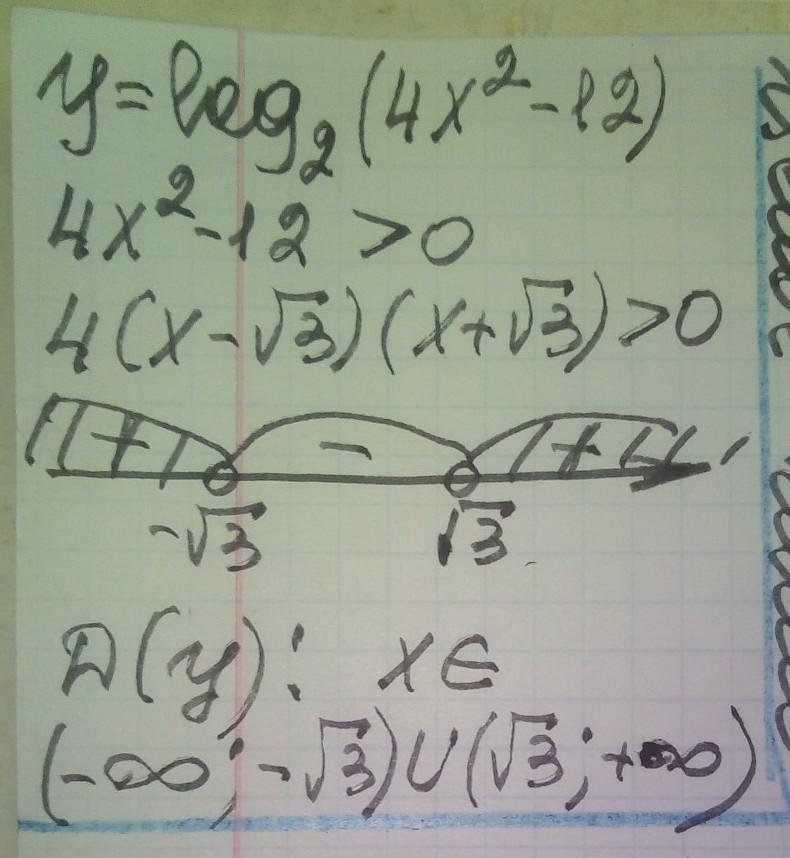 y = log₂(4x² - 12)
4x² - 12 > 0
4(x - √3)(x + √3) > 0
+ - +
-√3 √3
D(y): x ∈
(-∞; -√3) ∪ (√3; +∞)